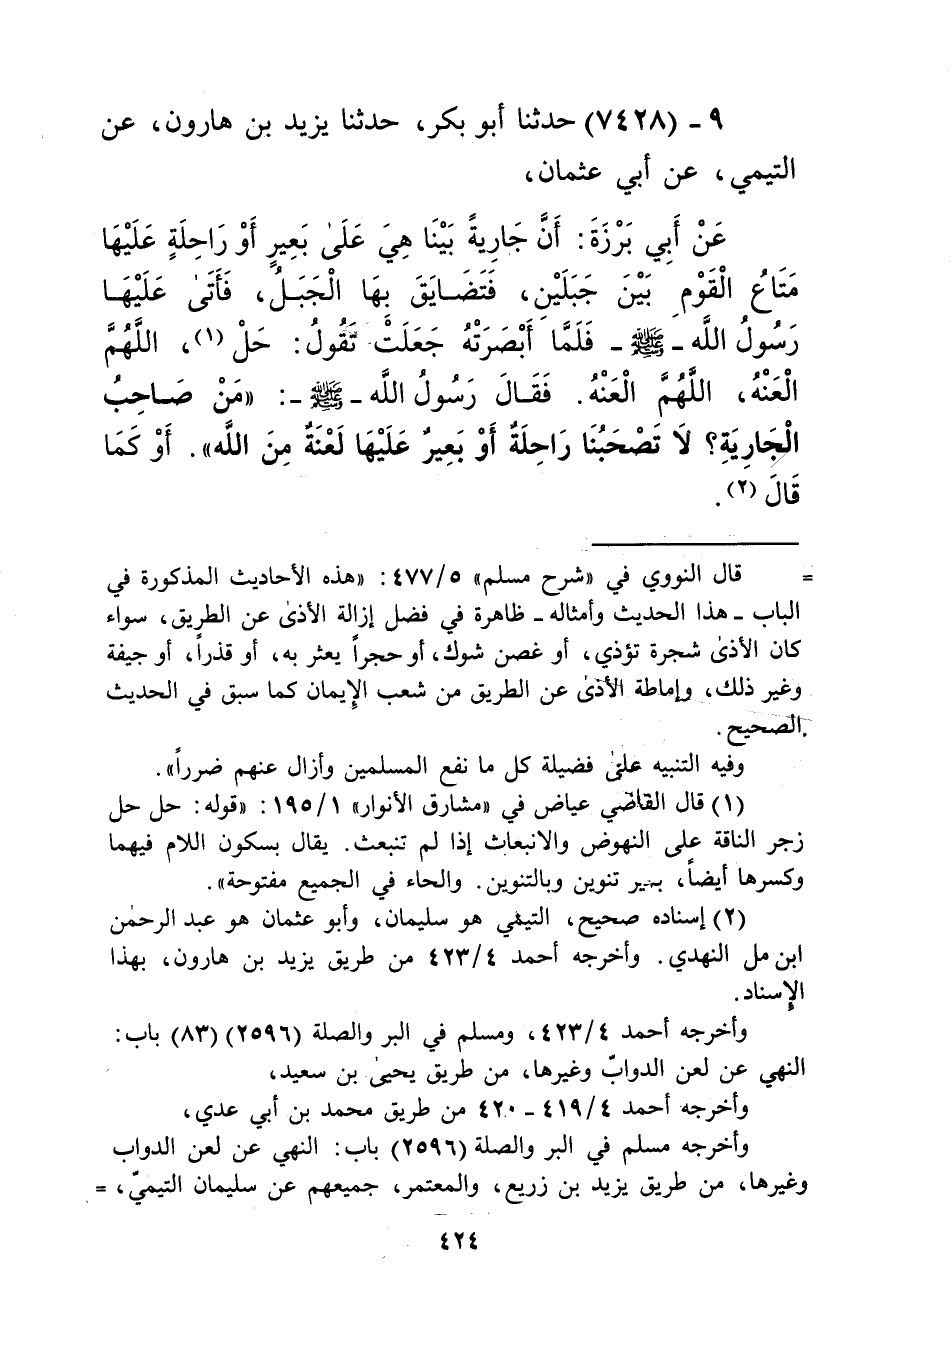 ٩ - (٧٤٢٨) حدثنا أبو بكر، حدثنا يزيد بن هارون، عن
التيمي، عن أبي عثمان،
عَنْ أَبِي بَرْزَةَ: أَنَّ جَارِيةً بَيْنَا هِيَ عَلَىٰ بَعِيرٍ أَوْ رَاحِلَةٍ عَلَيْهَا
مَتَاعُ الْقَوْمِ بَيْنَ جَبَلَيْنِ، فَتَضَايَقَ بِهَا الْجَبَلُ، فَأَتَىٰ عَلَيْهَا
رَسُولُ اللَّه - ﷺ - فَلَمَّا أَبْصَرَتْهُ جَعَلَتْ تَقُولُ: حَلْ (١)، اللَّهُمَّ
الْعَنْهُ، اللَّهُمَّ الْعَنْهُ. فَقَالَ رَسُولُ اللَّه - ﷺ -: «مَنْ صَاحِبُ
الْجَارِيَةِ؟ لَا تَصْحَبُنَا رَاحِلَةٌ أَوْ بَعِيرٌ عَلَيْهَا لَعْنَةٌ مِنَ اللَّه». أَوْ كَمَا
قَالَ (٢).
= قال النووي في «شرح مسلم» ٤٧٧/٥: «هذه الأحاديث المذكورة في
الباب - هذا الحديث وأمثاله - ظاهرة في فضل إزالة الأذىٰ عن الطريق، سواء
كان الأذىٰ شجرة تؤذي، أو غصن شوك، أو حجراً يعثر به، أو قذراً، أو جيفة
وغير ذلك، وإماطة الأذىٰ عن الطريق من شعب الإيمان كما سبق في الحديث
الصحيح.
وفيه التنبيه علىٰ فضيلة كل ما نفع المسلمين وأزال عنهم ضرراً».
(١) قال القاضي عياض في «مشارق الأنوار» ١٩٥/١: «قوله: حل حل
زجر الناقة على النهوض والانبعاث إذا لم تنبعث. يقال بسكون اللام فيهما
وكسرها أيضاً، بغير تنوين وبالتنوين. والحاء في الجميع مفتوحة».
(٢) إسناده صحيح، التيمي هو سليمان، وأبو عثمان هو عبد الرحمٰن
ابن مل النهدي. وأخرجه أحمد ٤٢٣/٤ من طريق يزيد بن هارون، بهذا
الإسناد.
وأخرجه أحمد ٤٢٣/٤، ومسلم في البر والصلة (٢٥٩٦) (٨٣) باب:
النهي عن لعن الدوابّ وغيرها، من طريق يحيىٰ بن سعيد،
وأخرجه أحمد ٤١٩/٤ - ٤٢٠ من طريق محمد بن أبي عدي،
وأخرجه مسلم في البر والصلة (٢٥٩٦) باب: النهي عن لعن الدواب
وغيرها، من طريق يزيد بن زريع، والمعتمر، جميعهم عن سليمان التيميّ، =
٤٢٤